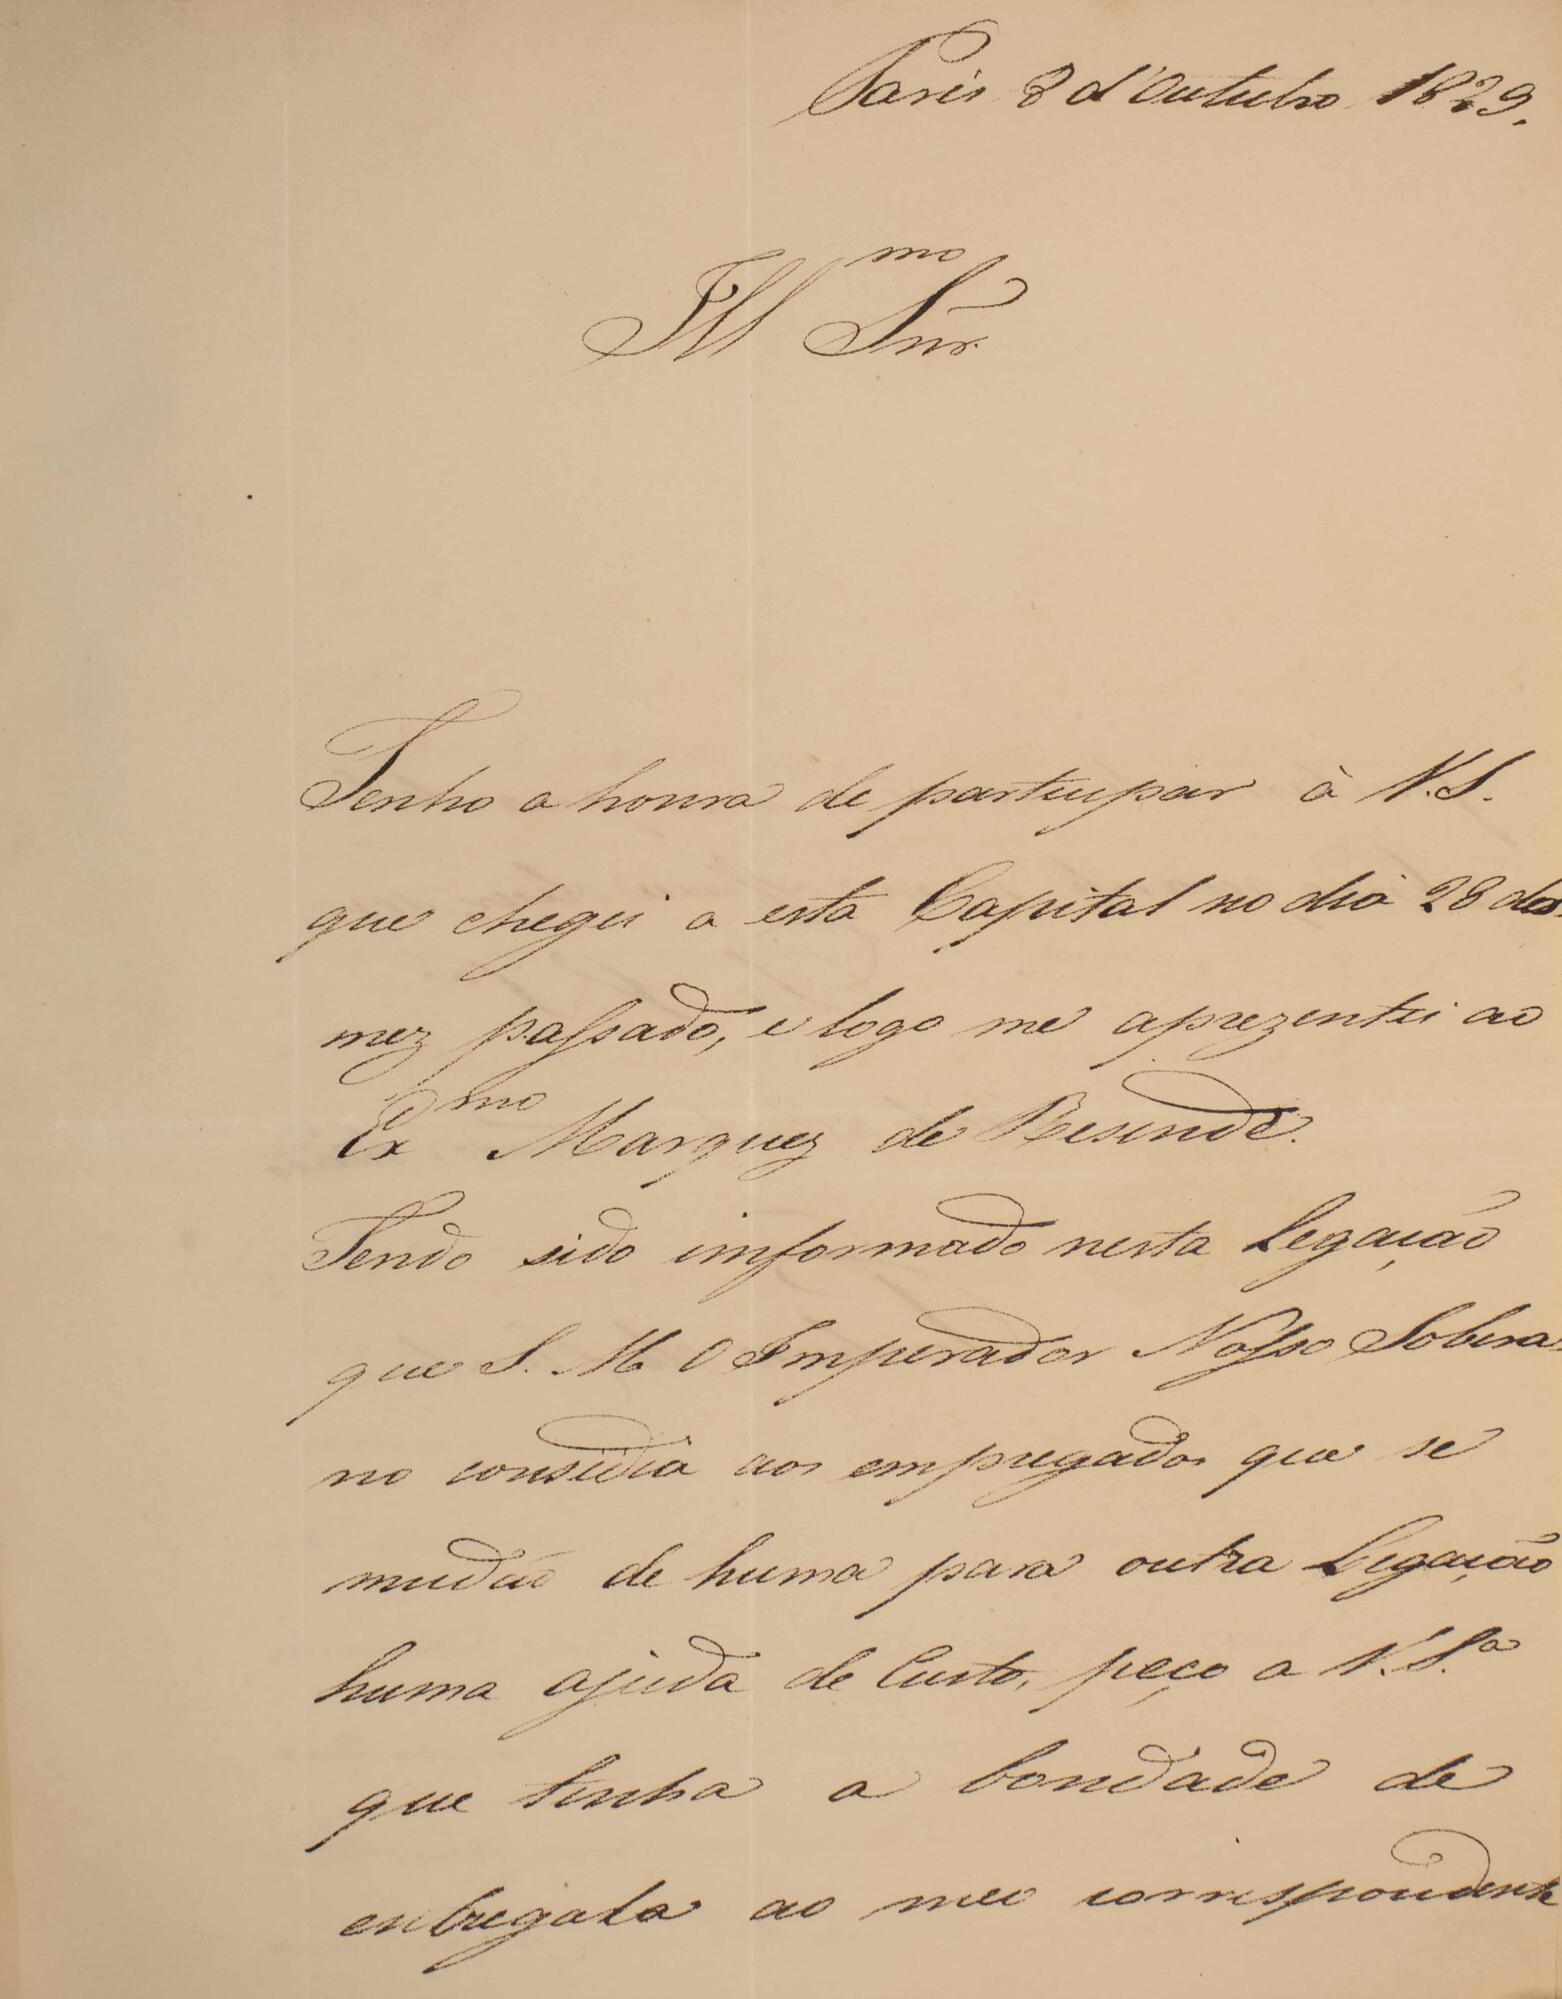 Paris 8 d'Outubro 1829.
Ill<sup>mo</sup> Snr.
Tenho a honra de participar à V.S.
que chegei a esta Capital no dia 28 do
mez passado, e logo me aprezentei ao
Ex<sup>mo</sup> Marquez de Resende.
Tendo sido imformado nesta Legação
que S. M O Imperador Nosso Sobera-
no considia aos empregados que se
mudão de huma para outra Legação
huma ajuda de Custo, peço a V.S.ª
que tenha a bondade de
entregala ao meo correspondente